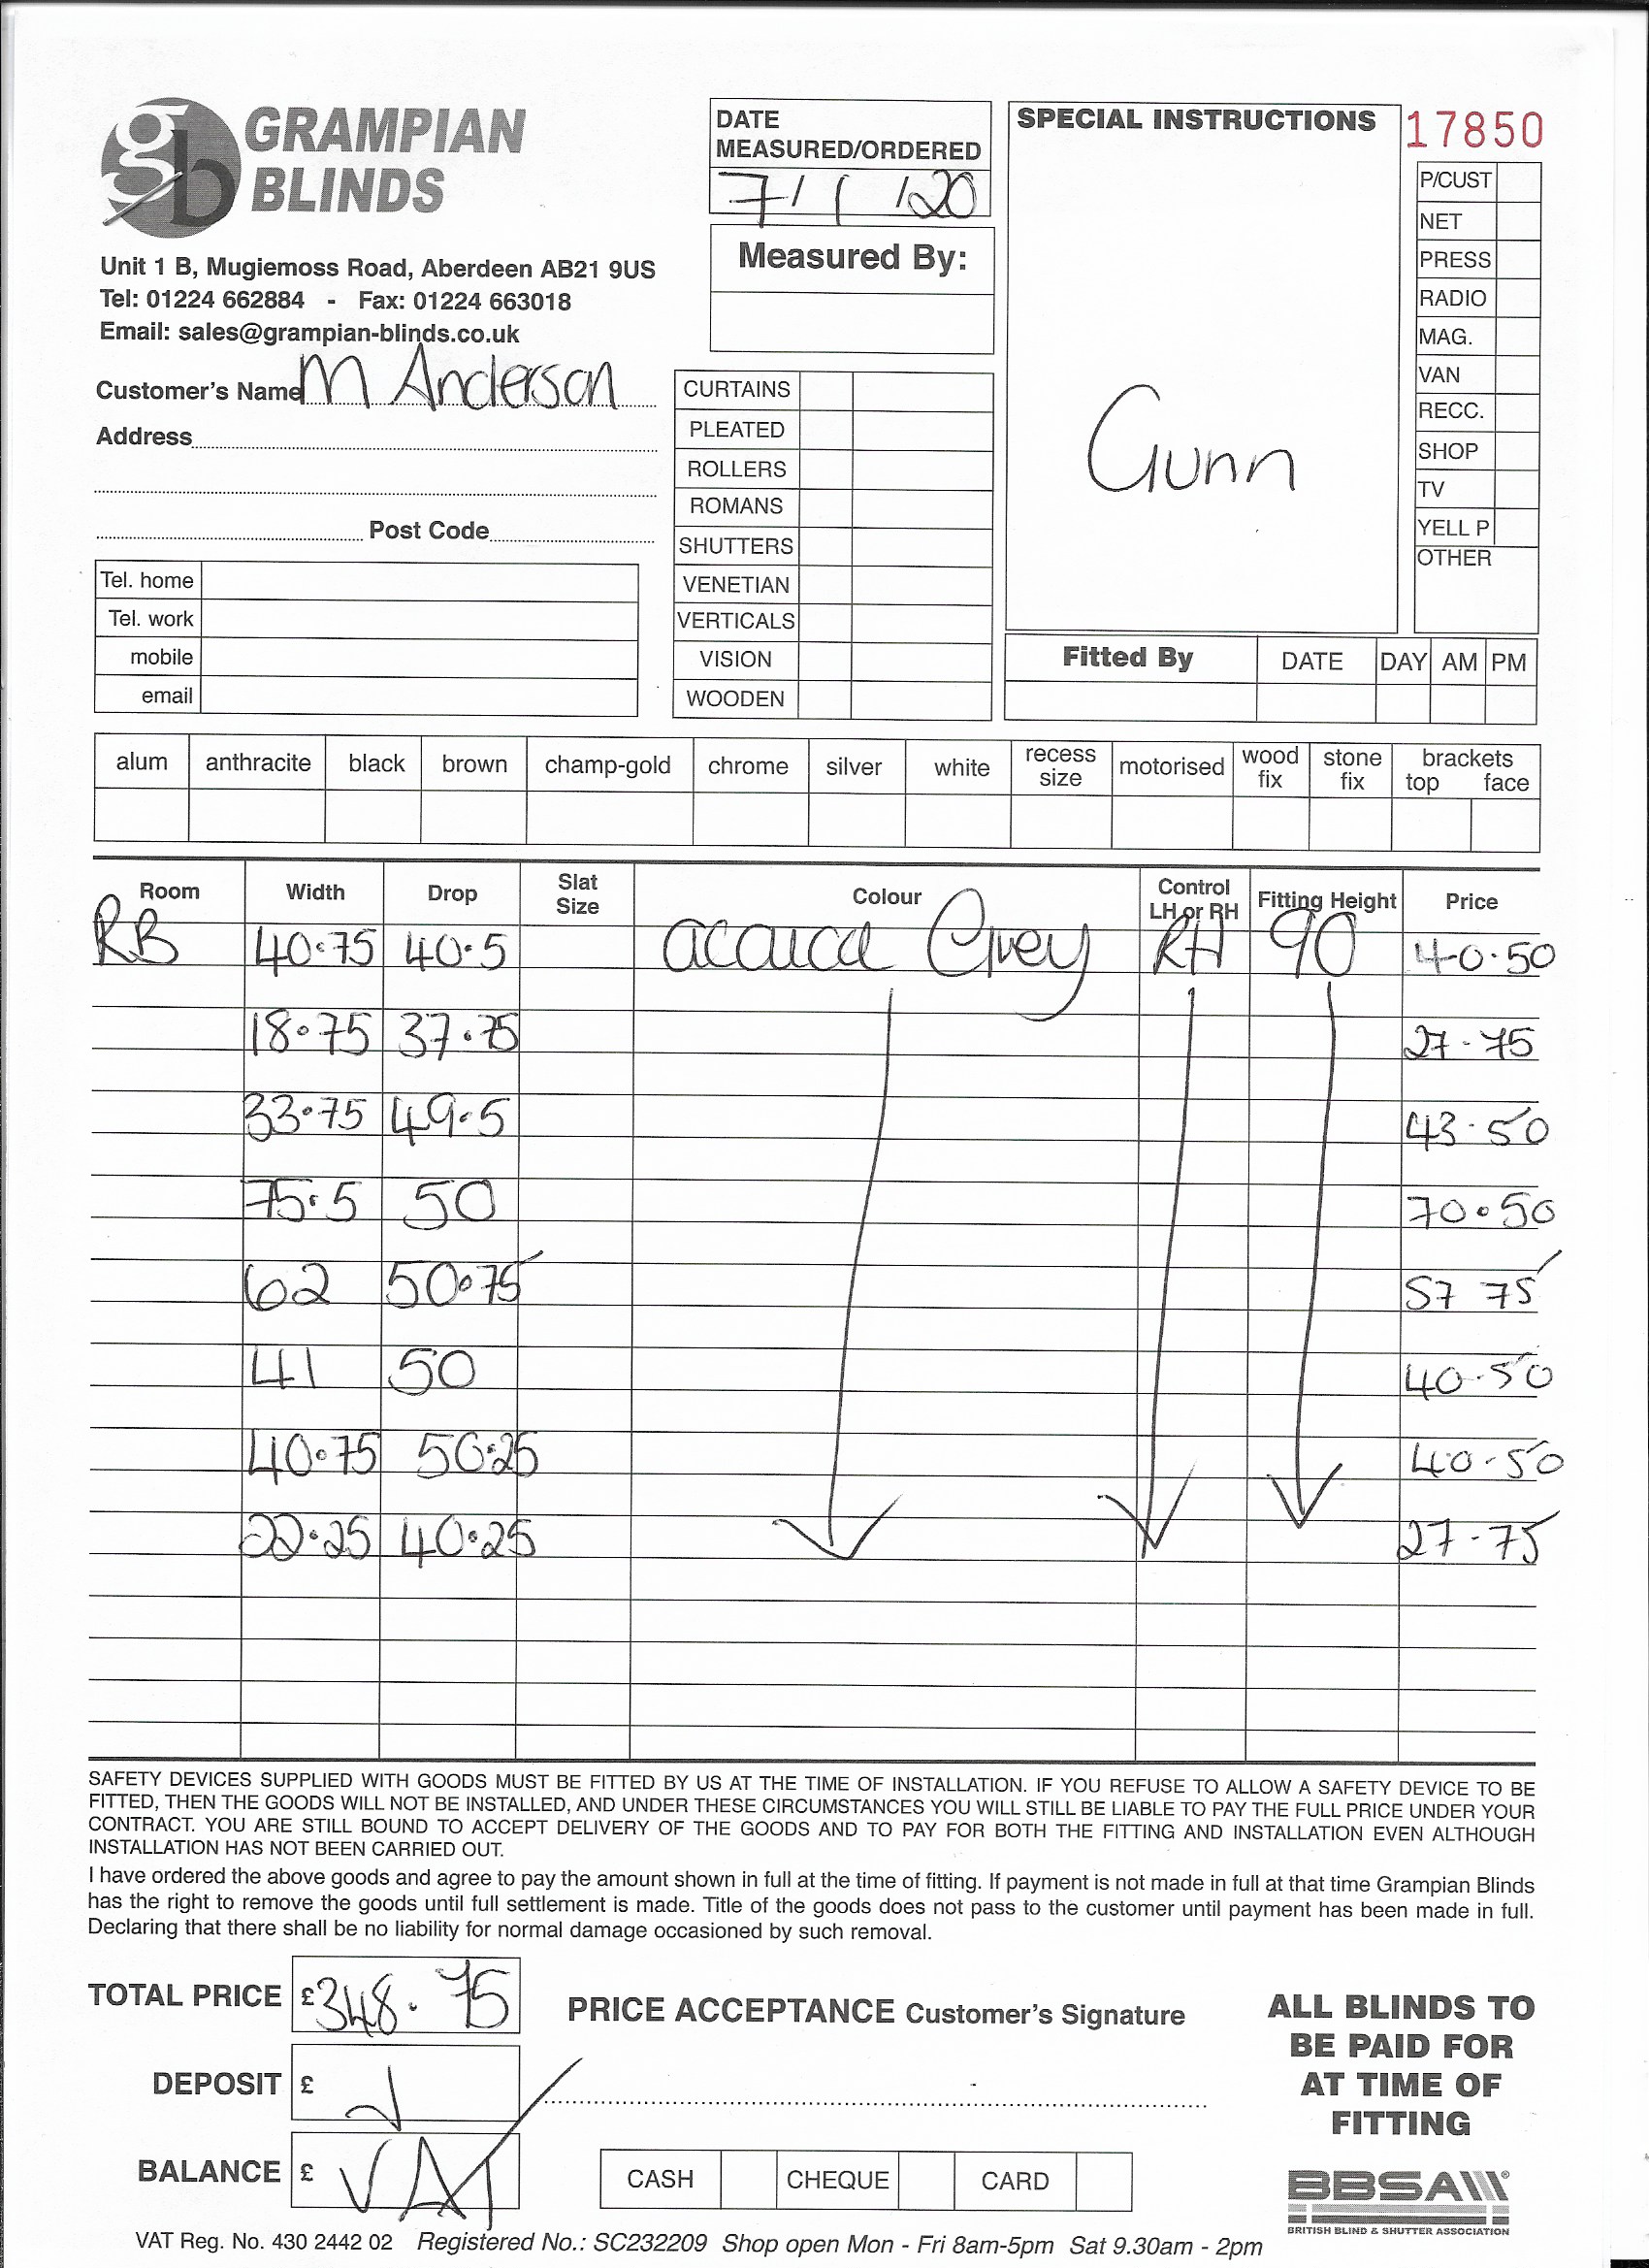 gb GRAMPIAN
BLINDS
Unit 1 B, Mugiemoss Road, Aberdeen AB21 9US
Tel: 01224 662884 - Fax: 01224 663018
Email: sales@grampian-blinds.co.uk
Customer's Name M Anderson
Address
Post Code
Tel. home
Tel. work
mobile
email
DATE
MEASURED/ORDERED
7/1/20
Measured By:
CURTAINS
PLEATED
ROLLERS
ROMANS
SHUTTERS
VENETIAN
VERTICALS
VISION
WOODEN
SPECIAL INSTRUCTIONS
Gunn
17850
P/CUST
NET
PRESS
RADIO
MAG.
VAN
RECC.
SHOP
TV
YELL P
OTHER
Fitted By DATE DAY AM PM
alum anthracite black brown champ-gold chrome silver white recess size motorised wood fix stone fix brackets top face
Room Width Drop Slat Size Colour Control LH or RH Fitting Height Price
RB 40.75 40.5 acaica Grey RH 90 40.50
18.75 37.75 27-75
33.75 49.5 43.50
75.5 50 70.50
62 50.75 57 75
41 50 40-50
40.75 50.25 40-50
22.25 40.25 27-75
SAFETY DEVICES SUPPLIED WITH GOODS MUST BE FITTED BY US AT THE TIME OF INSTALLATION. IF YOU REFUSE TO ALLOW A SAFETY DEVICE TO BE
FITTED, THEN THE GOODS WILL NOT BE INSTALLED, AND UNDER THESE CIRCUMSTANCES YOU WILL STILL BE LIABLE TO PAY THE FULL PRICE UNDER YOUR
CONTRACT. YOU ARE STILL BOUND TO ACCEPT DELIVERY OF THE GOODS AND TO PAY FOR BOTH THE FITTING AND INSTALLATION EVEN ALTHOUGH
INSTALLATION HAS NOT BEEN CARRIED OUT.
I have ordered the above goods and agree to pay the amount shown in full at the time of fitting. If payment is not made in full at that time Grampian Blinds
has the right to remove the goods until full settlement is made. Title of the goods does not pass to the customer until payment has been made in full.
Declaring that there shall be no liability for normal damage occasioned by such removal.
TOTAL PRICE £348.75
PRICE ACCEPTANCE Customer's Signature
DEPOSIT £
BALANCE £ VAT
CASH CHEQUE CARD
ALL BLINDS TO
BE PAID FOR
AT TIME OF
FITTING
BBSA
BRITISH BLIND & SHUTTER ASSOCIATION
VAT Reg. No. 430 2442 02 Registered No.: SC232209 Shop open Mon - Fri 8am-5pm Sat 9.30am - 2pm